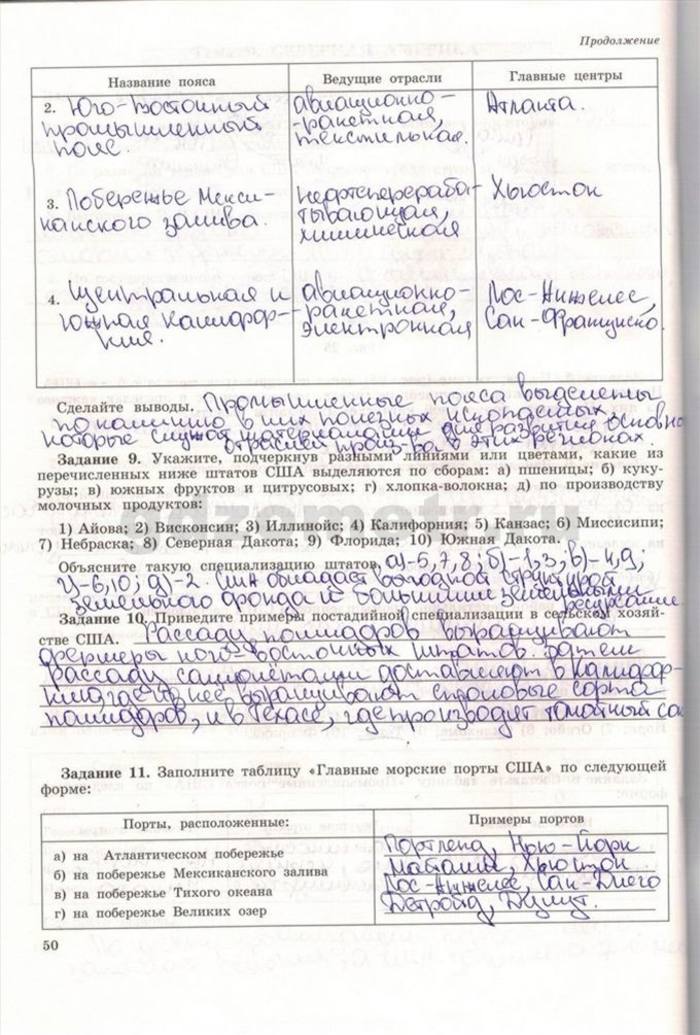 Продолжение
Название пояса Ведущие отрасли Главные центры
2. Юго-Восточный авиационно- Атланта.
промышленный -ракетная,
пояс. текстильная.
3. Побережье Мекси- нефтеперераба- Хьюстон
канского залива. тывающая,
химическая
4. Центральная и авиационно- Лос-Анжелес,
Южная Калифор- -ракетная, Сан-Франциско.
ния. электронная
Сделайте выводы. Промышленные пояса выделены
по наличию в них полезных ископаемых,
которые служат материалами для развития основн
отраслей произ-ва в этих регионах.
Задание 9. Укажите, подчеркнув разными линиями или цветами, какие из
перечисленных ниже штатов США выделяются по сборам: а) пшеницы; б) куку-
рузы; в) южных фруктов и цитрусовых; г) хлопка-волокна; д) по производству
молочных продуктов:
1) Айова; 2) Висконсин; 3) Иллинойс; 4) Калифорния; 5) Канзас; 6) Миссисипи;
7) Небраска; 8) Северная Дакота; 9) Флорида; 10) Южная Дакота.
Объясните такую специализацию штатов. а)-5,7,8; б)-1,3; в)-4,9;
г)-6,10; д)-2. США обладает выгодной структурой
земельного фонда и большими земельными
ресурсами
Задание 10. Приведите примеры постадийной специализации в сельском хозяй-
стве США. Рассаду помидоров выращивают
фермеры юго-восточных штатов. Затем
рассаду самолётами доставляют в Калифор-
нию, где из неё выращивают столовые сорта
помидоров, и в Техасе, где производят томатный со
Задание 11. Заполните таблицу «Главные морские порты США» по следующей
форме:
Порты, расположенные: Примеры портов
а) на Атлантическом побережье Портленд, Нью-Йорк
б) на побережье Мексиканского залива Хьюстон
в) на побережье Тихого океана Лос-Анжелес, Сан-Диего
г) на побережье Великих озер Детройд, Дулут.
50